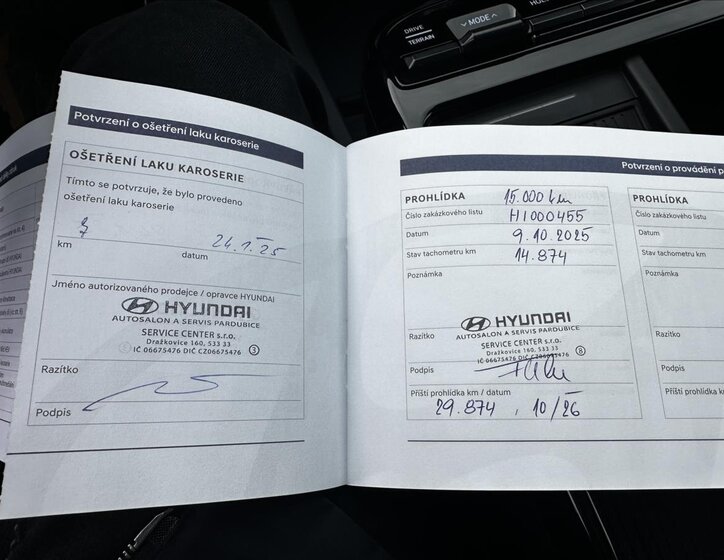 DRIVE
TERRAIN
MODE
Potvrzení o ošetření laku karoserie
OŠETŘENÍ LAKU KAROSERIE
Tímto se potvrzuje, že bylo provedeno
ošetření laku karoserie
24.1.25
km
datum
Jméno autorizovaného prodejce / opravce HYUNDAI
HYUNDAI
AUTOSALON A SERVIS PARDUBICE
SERVICE CENTER s.r.o.
Dražkovice 160, 533 33
IČ 06675476 DIČ CZ06675476 3
Razítko
Podpis
Potvrzení o provádění p
PROHLÍDKA 15.000 km
Číslo zakázkového listu H1000455
Datum 9.10.2025
Stav tachometru km 14.874
Poznámka
HYUNDAI
AUTOSALON A SERVIS PARDUBICE
Razítko
SERVICE CENTER s.r.o.
Dražkovice 160, 533 33
IČ 06675476 DIČ CZ06675476 8
Podpis
Příští prohlídka km / datum
29.874, 10/26
PROHLÍDKA
Číslo zakázkového listu
Datum
Stav tachometru km
Poznámka
Razítko
Podpis
Příští prohlídka km